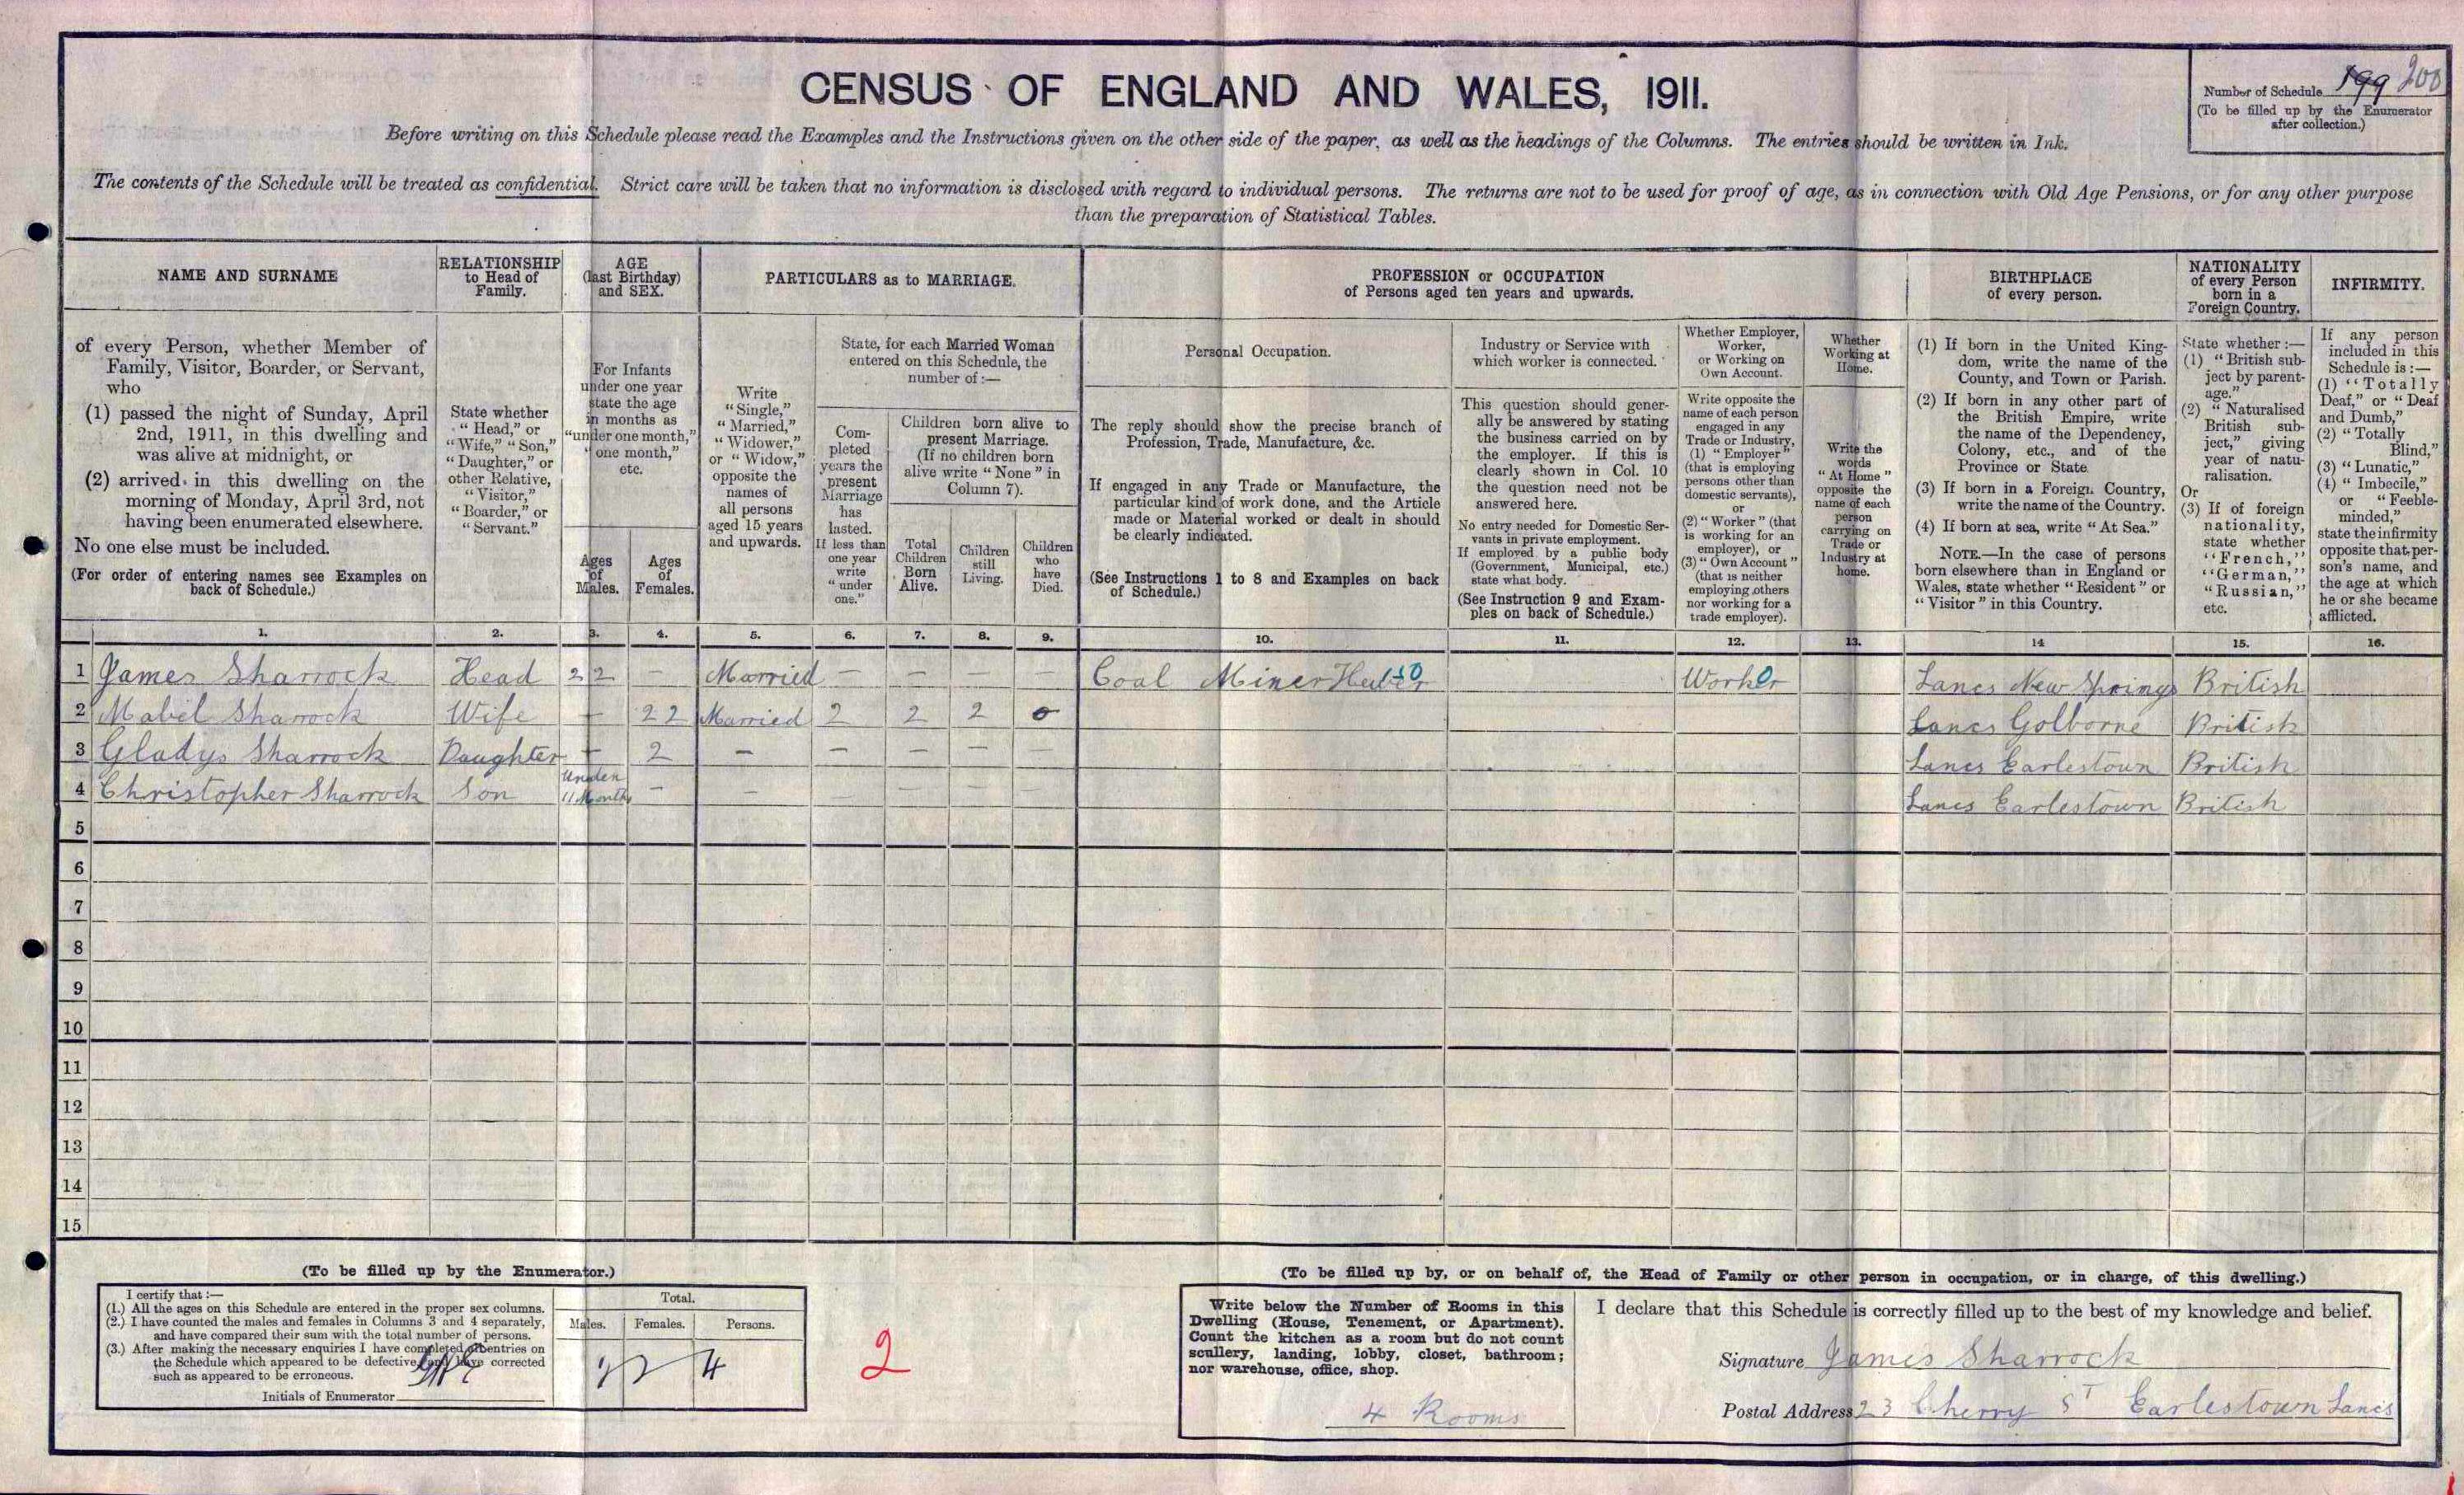 CENSUS OF ENGLAND AND WALES, 1911.
Number of Schedule 199 200
(To be filled up by the Enumerator
after collection.)
Before writing on this Schedule please read the Examples and the Instructions given on the other side of the paper, as well as the headings of the Columns. The entries should be written in Ink.
The contents of the Schedule will be treated as confidential. Strict care will be taken that no information is disclosed with regard to individual persons. The returns are not to be used for proof of age, as in connection with Old Age Pensions, or for any other purpose
than the preparation of Statistical Tables.
NAME AND SURNAME
of every Person, whether Member of
Family, Visitor, Boarder, or Servant,
who
(1) passed the night of Sunday, April
2nd, 1911, in this dwelling and
was alive at midnight, or
(2) arrived in this dwelling on the
morning of Monday, April 3rd, not
having been enumerated elsewhere.
No one else must be included.
(For order of entering names see Examples on
back of Schedule.)
RELATIONSHIP
to Head of
Family.
State whether
"Head," or
"Wife," "Son,"
"Daughter," or
other Relative,
"Visitor,"
"Boarder," or
"Servant."
AGE
(last Birthday)
and SEX.
For Infants
under one year
state the age
in months as
"under one month,"
"one month,"
etc.
Ages
of
Males.
Ages
of
Females.
PARTICULARS as to MARRIAGE.
Write
"Single,"
"Married,"
"Widower,"
or "Widow,"
opposite the
names of
all persons
aged 15 years
and upwards.
State, for each Married Woman
entered on this Schedule, the
number of :—
Com-
pleted
years the
present
Marriage
has
lasted.
If less than
one year
write
"under
one."
Children born alive to
present Marriage.
(If no children born
alive write "None" in
Column 7).
Total
Children
Born
Alive.
Children
still
Living.
Children
who
have
Died.
PROFESSION or OCCUPATION
of Persons aged ten years and upwards.
Personal Occupation.
The reply should show the precise branch of
Profession, Trade, Manufacture, &c.
If engaged in any Trade or Manufacture, the
particular kind of work done, and the Article
made or Material worked or dealt in should
be clearly indicated.
(See Instructions 1 to 8 and Examples on back
of Schedule.)
Industry or Service with
which worker is connected.
This question should gener-
ally be answered by stating
the business carried on by
the employer. If this is
clearly shown in Col. 10
the question need not be
answered here.
No entry needed for Domestic Ser-
vants in private employment.
If employed by a public body
(Government, Municipal, etc.)
state what body.
(See Instruction 9 and Exam-
ples on back of Schedule.)
Whether Employer,
Worker,
or Working on
Own Account.
Write opposite the
name of each person
engaged in any
Trade or Industry,
(1) "Employer"
(that is employing
persons other than
domestic servants),
or
(2) "Worker" (that
is working for an
employer), or
(3) "Own Account"
(that is neither
employing others
nor working for a
trade employer).
Whether
Working at
Home.
Write the
words
"At Home"
opposite the
name of each
person
carrying on
Trade or
Industry at
home.
BIRTHPLACE
of every person.
(1) If born in the United King-
dom, write the name of the
County, and Town or Parish.
(2) If born in any other part of
the British Empire, write
the name of the Dependency,
Colony, etc., and of the
Province or State.
(3) If born in a Foreign Country,
write the name of the Country.
(4) If born at sea, write "At Sea."
NOTE.—In the case of persons
born elsewhere than in England or
Wales, state whether "Resident" or
"Visitor" in this Country.
NATIONALITY
of every Person
born in a
Foreign Country.
State whether :—
(1) "British sub-
ject by parent-
age."
(2) "Naturalised
British sub-
ject," giving
year of natu-
ralisation.
Or
(3) If of foreign
nationality,
state whether
"French,"
"German,"
"Russian,"
etc.
INFIRMITY.
If any person
included in this
Schedule is :—
(1) "Totally
Deaf," or "Deaf
and Dumb,"
(2) "Totally
Blind,"
(3) "Lunatic,"
(4) "Imbecile,"
or "Feeble-
minded,"
state the infirmity
opposite that per-
son's name, and
the age at which
he or she became
afflicted.
1. 2. 3. 4. 5. 6. 7. 8. 9. 10. 11. 12. 13. 14 15. 16.
1 James Sharrock Head 22 — Married — — — — Coal Miner Worker Lancs New Springs British
2 Mabel Sharrock Wife — 22 Married 2 2 2 0 Lancs Golborne British
3 Gladys Sharrock Daughter — 2 — — — — — Lancs Earlestown British
4 Christopher Sharrock Son Under 11 Months — — — — — Lancs Earlestown British
5
6
7
8
9
10
11
12
13
14
15
(To be filled up by the Enumerator.)
I certify that :—
(1.) All the ages on this Schedule are entered in the proper sex columns.
(2.) I have counted the males and females in Columns 3 and 4 separately,
and have compared their sum with the total number of persons.
(3.) After making the necessary enquiries I have completed all entries on
the Schedule which appeared to be defective, and have corrected
such as appeared to be erroneous.
Initials of Enumerator
Total.
Males. Females. Persons.
2 2 4
2
(To be filled up by, or on behalf of, the Head of Family or other person in occupation, or in charge, of this dwelling.)
Write below the Number of Rooms in this
Dwelling (House, Tenement, or Apartment).
Count the kitchen as a room but do not count
scullery, landing, lobby, closet, bathroom;
nor warehouse, office, shop.
4 Rooms
I declare that this Schedule is correctly filled up to the best of my knowledge and belief.
Signature James Sharrock
Postal Address 23 Cherry St Earlestown Lancs